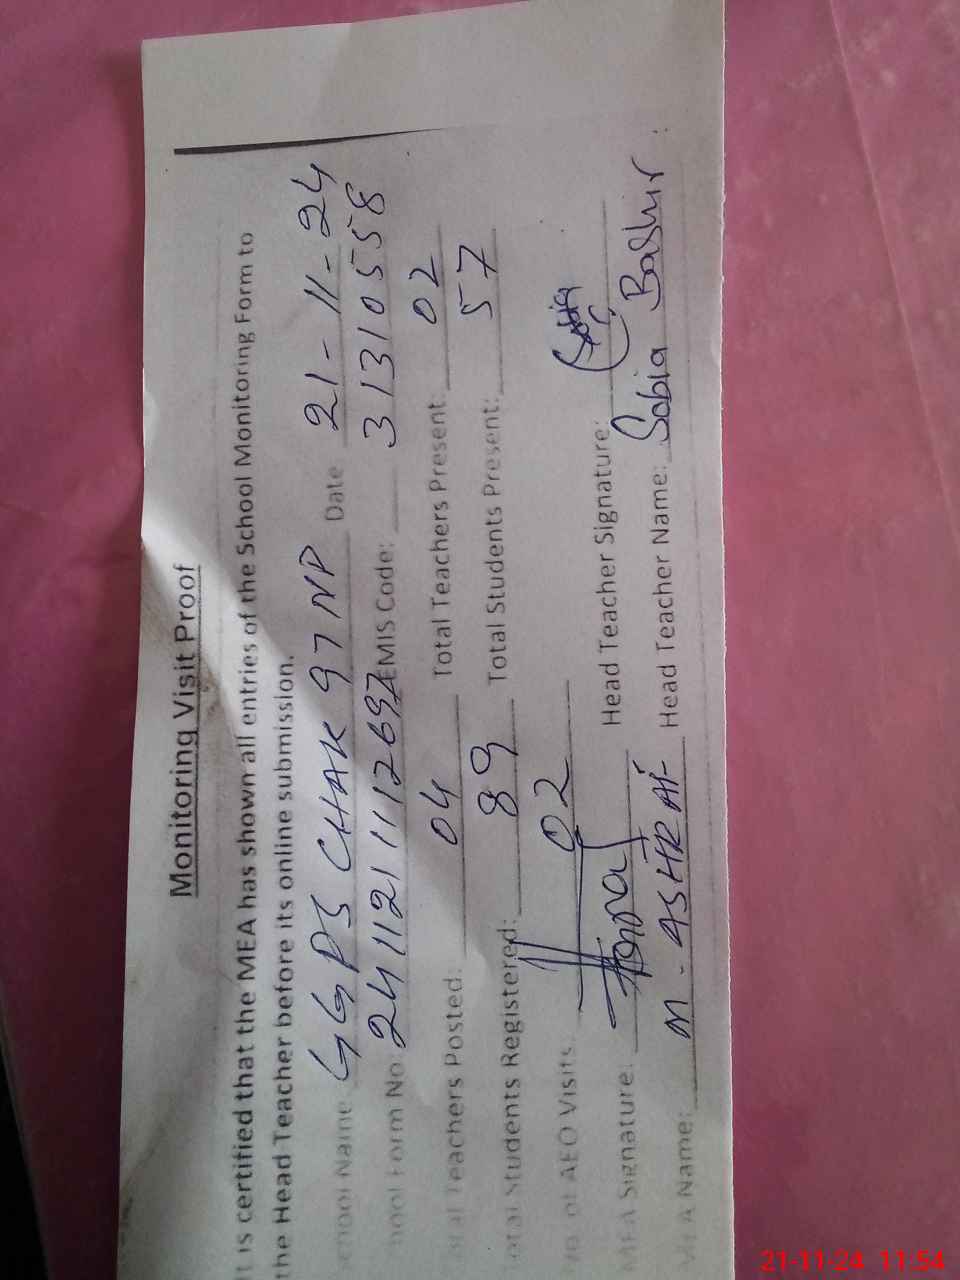 Monitoring Visit Proof
It is certified that the MEA has shown all entries of the School Monitoring Form to
the Head Teacher before its online submission.
School Name: GGPS CHAK 97 NP Date 21-11-24
School Form No: 2411211112697 EMIS Code: 31310558
Total Teachers Posted: 04 Total Teachers Present: 02
Total Students Registered: 89 Total Students Present: 57
No of AEO Visits 02
MEA Signature: Head Teacher Signature: Sobia
MEA Name: M. ASHRAF Head Teacher Name: Sobia Bashir
21-11-24 11:54